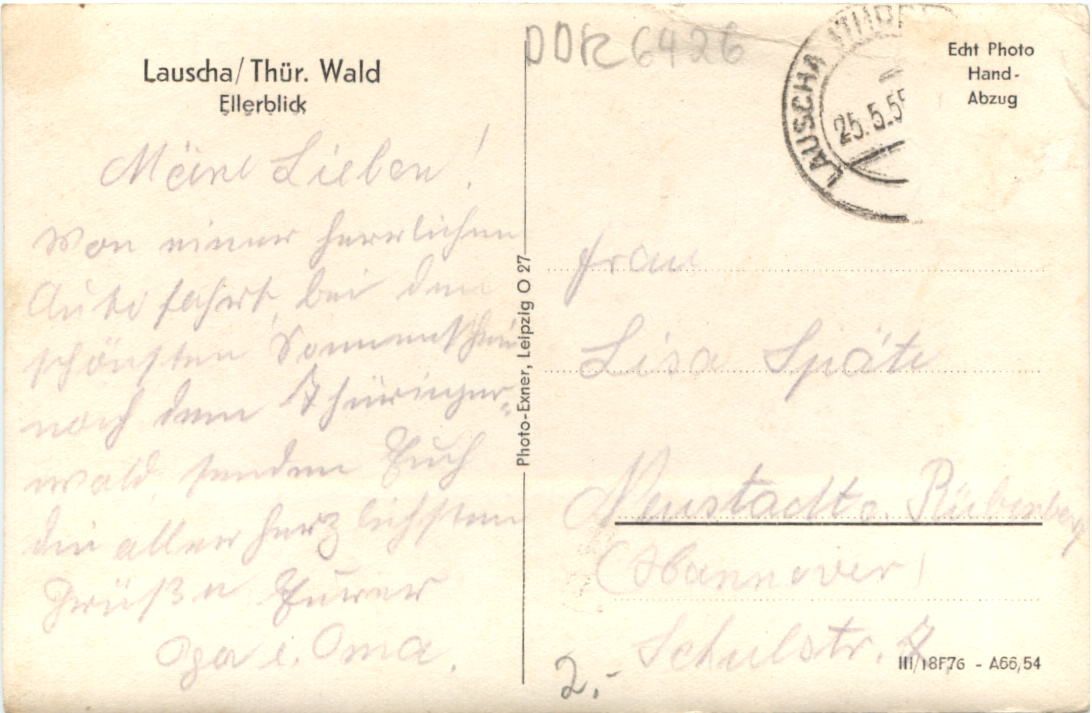 Lauscha/Thür. Wald
Ellerblick
Meine Lieben!
Von einer herrlichen
Autofahrt, bei dem
schönsten Sonnenschein
nach dem Thüringer-
wald senden Euch
die aller herzlichsten
Grüße Eurer
Opa u. Oma.
Photo-Exner, Leipzig O 27
DDR 6426
LAUSCHA THÜR
25.5.5
Echt Photo
Hand-
Abzug
Frau
Lisa Späte
Neustadt a. Rübenberg
(Hannover)
Schulstr. 7
2,-
III/18F76 - A66,54